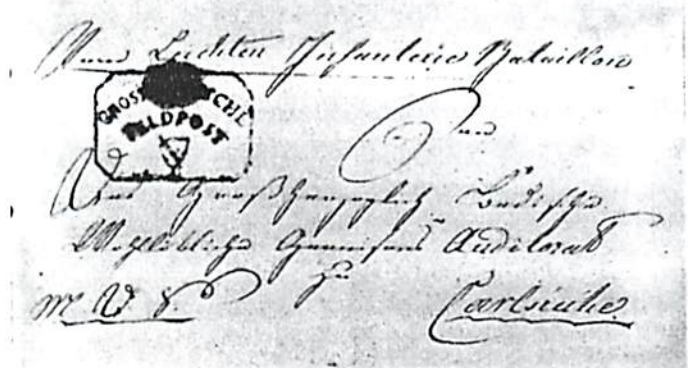 Vom Leichten Infanterie Bataillon
GROSS SCHE
FELDPOST
An
Das Großherzoglich Badische
Wohllöbliche Garnisons Auditorat
zu
Carlsruhe